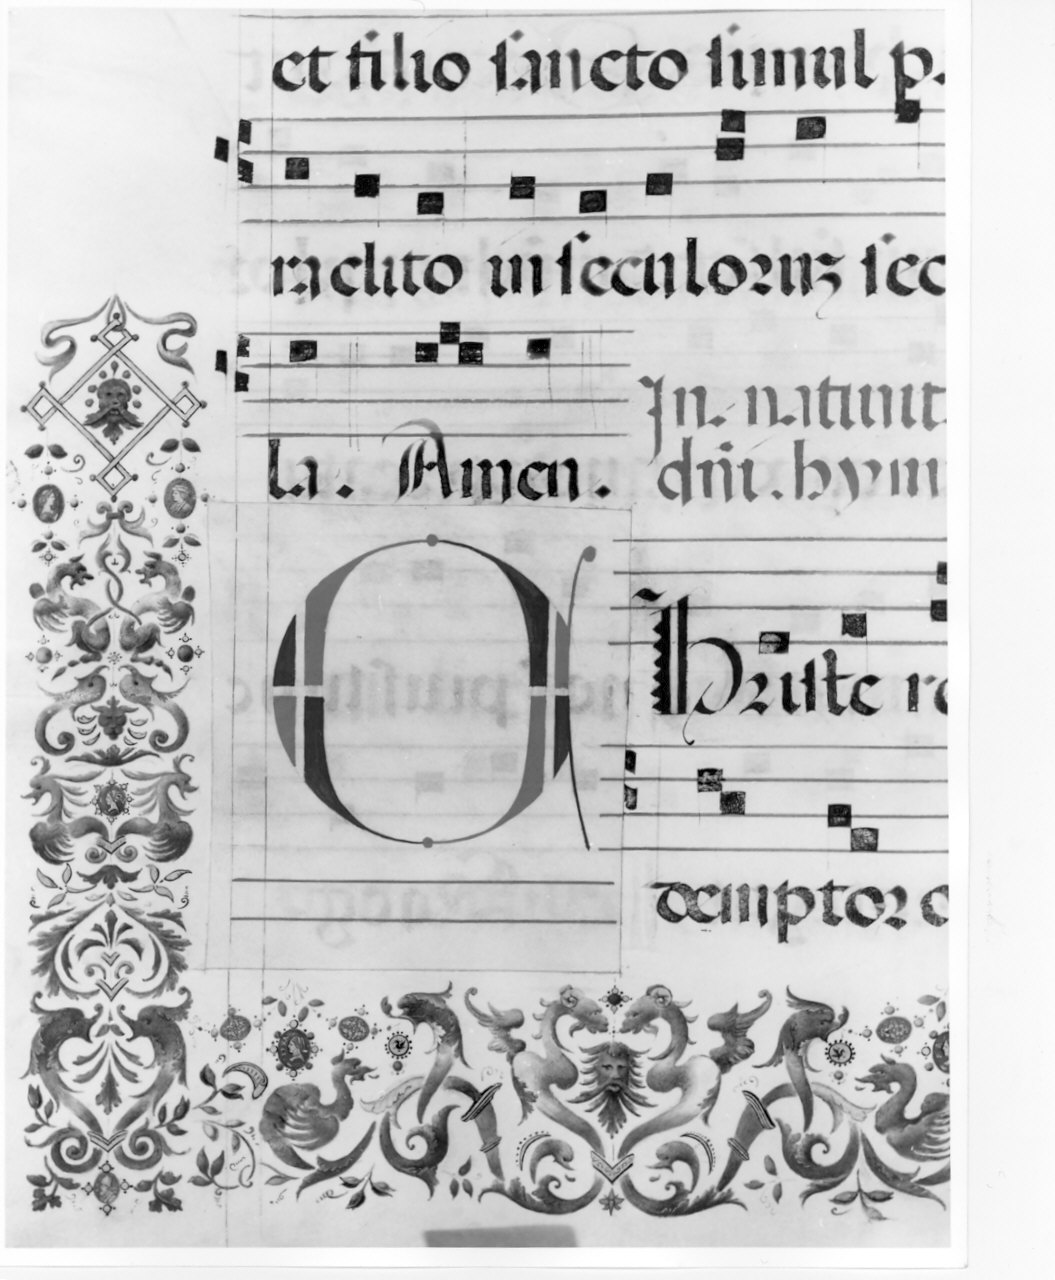 et filio sancto simul p.
raclito in seculorum sec
la. Amen.
In. natiuit
dñi. hymn
Christe re
demptor o